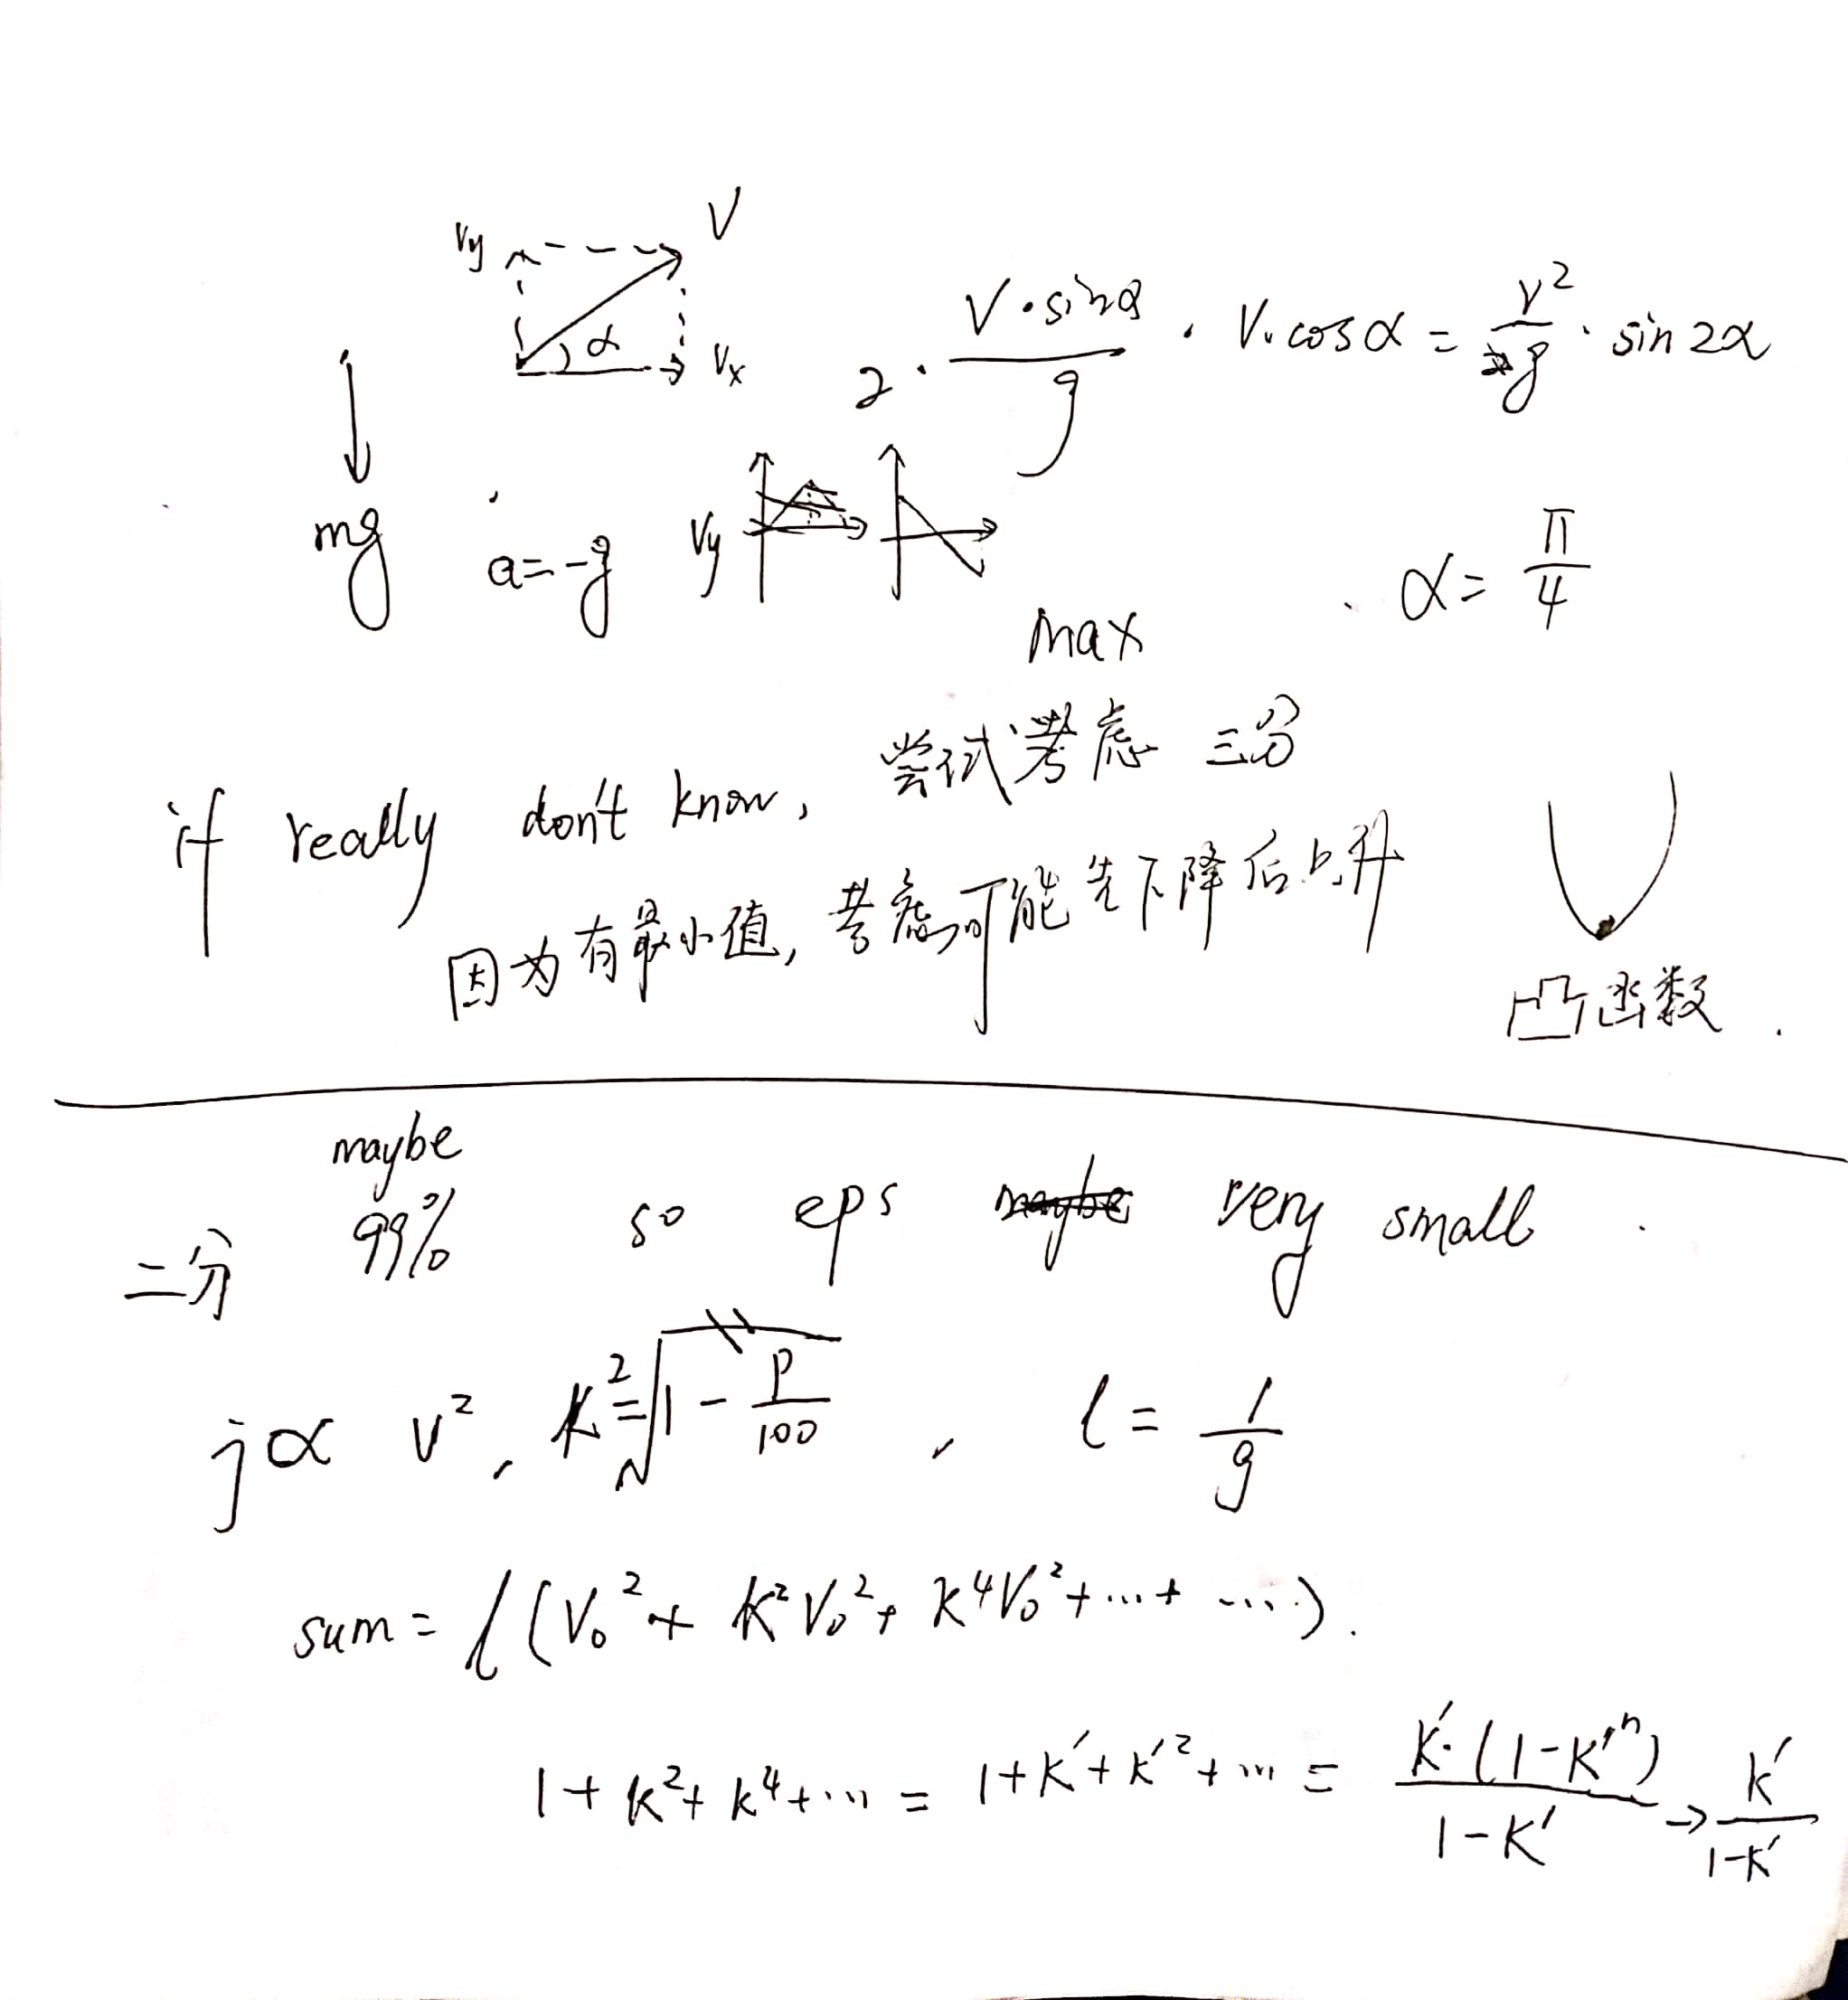 Vy V
α Vx
2 · V·sinα / g · V·cosα = V² / g · sin 2α
mg a=-g Vy
max α = π/4
if really don't know, 尝试考虑 三分
因为有最小值, 考虑可能先下降后上升
凸函数
maybe
二分 99% so eps very small
j ∝ v², K² = 1 - P/100, l = 1/g
sum = l (V₀² + K²V₀² + K⁴V₀² + ... + ....).
1 + K² + K⁴ + ... = 1 + K′ + K′² + ... = K′·(1-K′ⁿ) / 1-K′ → K′ / 1-K′